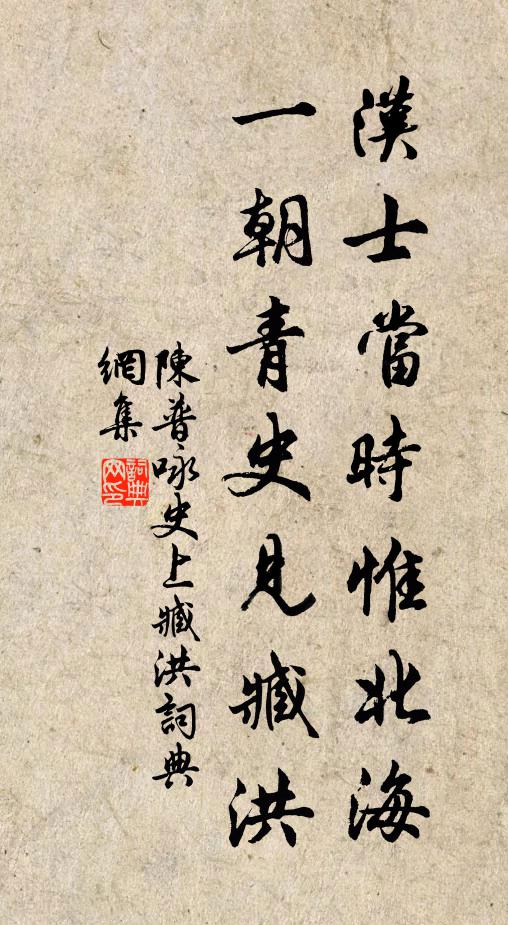 漢士當時惟北海
一朝青史見臧洪
陳普咏史上臧洪詞典
網集
詞典
网印